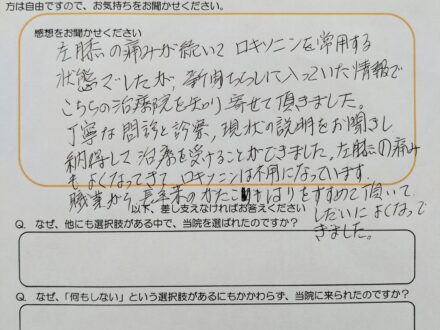 方は自由ですので、お気持ちをお聞かせください。
感想をお聞かせください
左膝の痛みが続いて ロキソニンを常用する
状態でしたが、新聞ちらしに入っていた情報で
こちらの治療院を知り寄せて頂きました。
丁寧な問診と診察、現状の説明をお聞きし
納得して治療を受けることができました。左膝の痛み
もよくなってきて ロキソニンは不用になっています。
職業から 長年来のかたこりやはりをすすめて頂いて
しだいに よくなって
きました。
以下、差し支えなければお答えください
Q. なぜ、他にも選択肢がある中で、当院を選ばれたのですか?
Q. なぜ、「何もしない」という選択肢があるにもかかわらず、当院に来られたのですか?